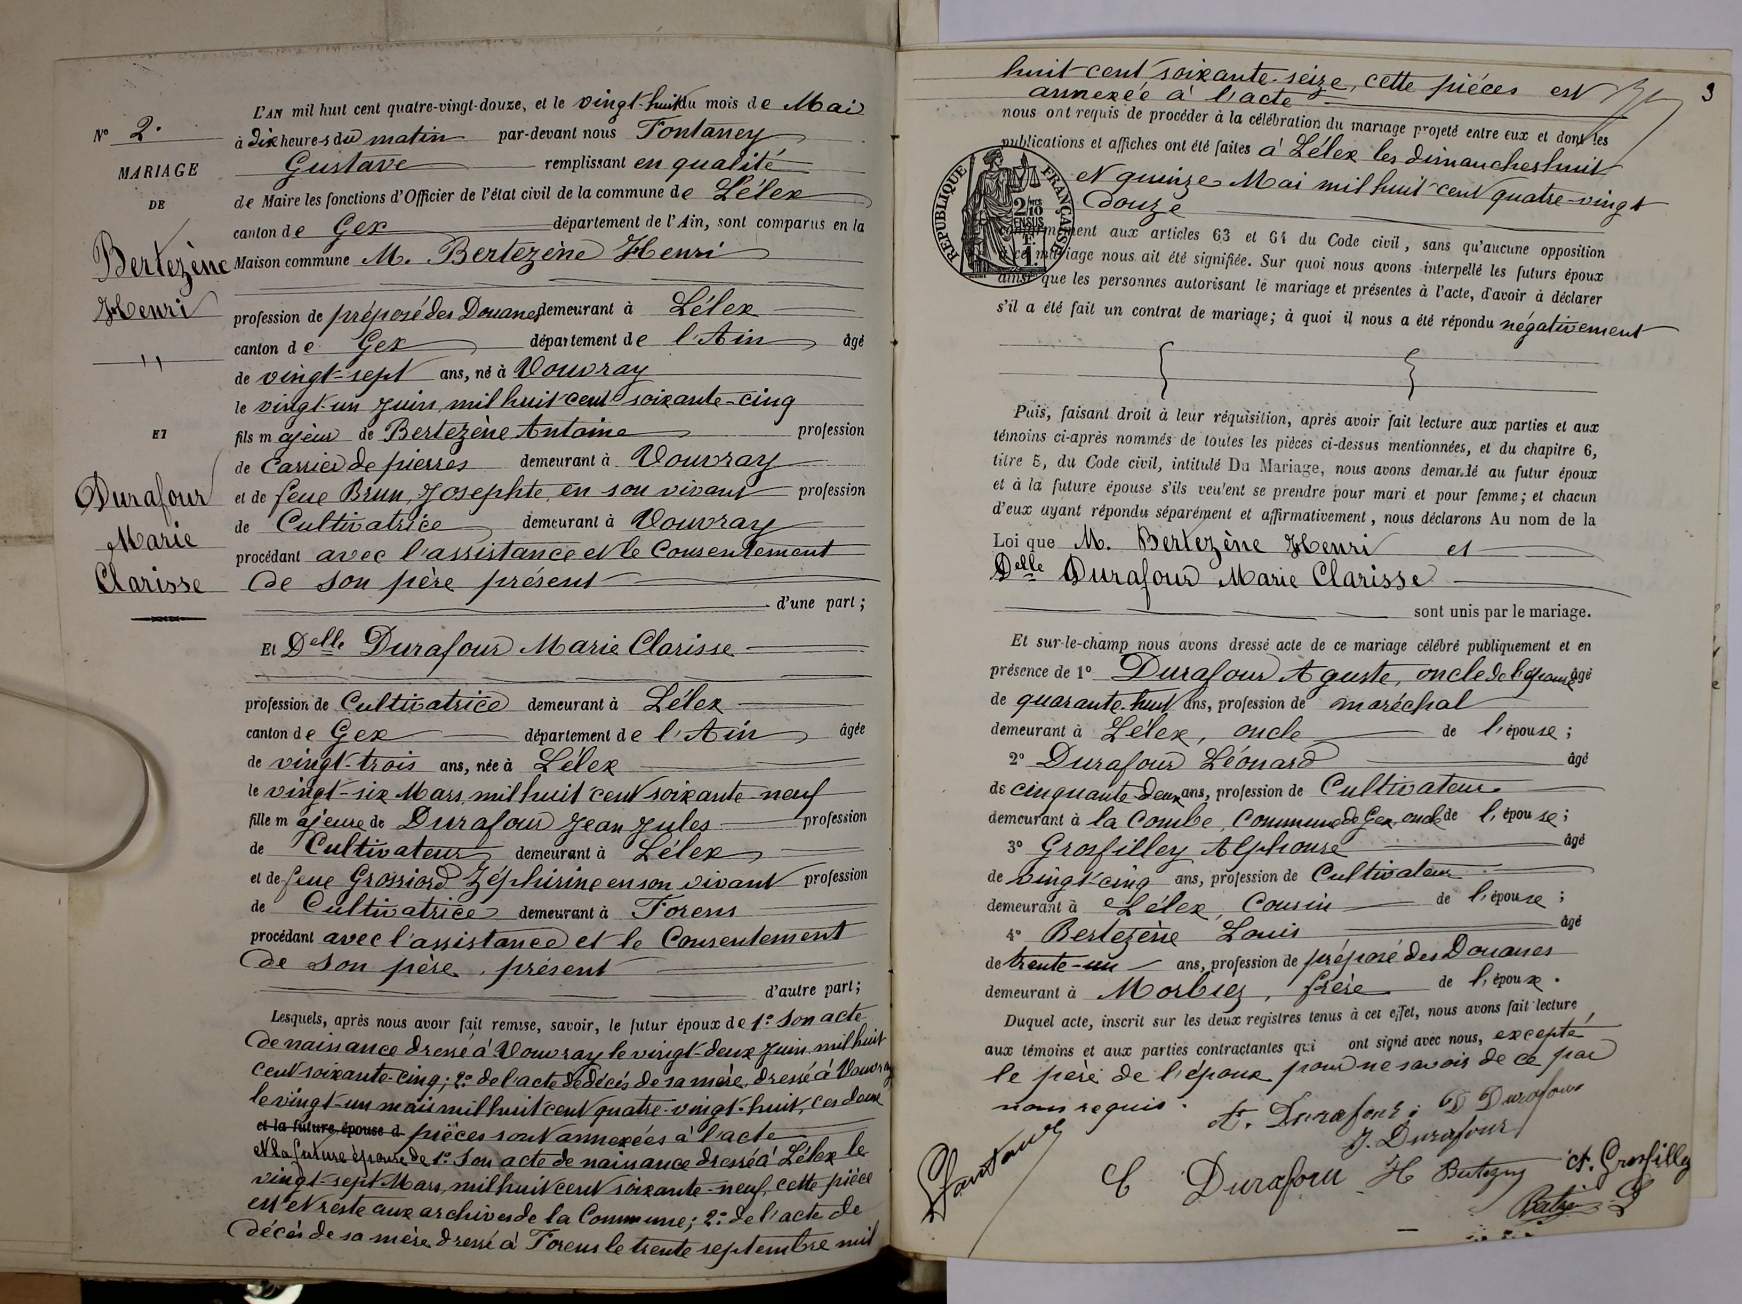 N° 2.
MARIAGE
DE
Bertezène
Henri
ET
Durafour
Marie
Clarisse
L'AN mil huit cent quatre-vingt-douze, et le vingt-huit du mois de Mai
à dix heures du matin par-devant nous Fontaney
Gustave remplissant en qualité
de Maire les fonctions d'Officier de l'état civil de la commune de Lélex
canton de Gex département de l'Ain, sont comparus en la
Maison commune M. Bertezène Henri
profession de préposé des Douanes demeurant à Lélex
canton de Gex département de l'Ain âgé
de vingt-sept ans, né à Vouvray
le vingt-un Juin mil huit cent soixante-cinq
fils majeur de Bertezène Antoine profession
de Carrier de pierres demeurant à Vouvray
et de feue Brun, Josephte, en son vivant profession
de Cultivatrice demeurant à Vouvray
procédant avec l'assistance et le Consentement
de son père présent
d'une part;
Et Delle Durafour Marie Clarisse
profession de Cultivatrice demeurant à Lélex
canton de Gex département de l'Ain âgée
de vingt-trois ans, née à Lélex
le vingt-six Mars mil huit cent soixante-neuf
fille majeure de Durafour Jean Jules profession
de Cultivateur demeurant à Lélex
et de feue Grossiord Zéphirine en son vivant profession
de Cultivatrice demeurant à Forens
procédant avec l'assistance et le Consentement
de son père, présent
d'autre part;
Lesquels, après nous avoir fait remise, savoir, le futur époux de 1° Son acte
de naissance dressé à Vouvray le vingt-deux Juin mil huit
cent soixante-cinq; 2° de l'acte de décés de sa mère, dressé à Vouvray
le vingt-un mois mil huit cent quatre-vingt-huit, ces deux
et la future épouse d pièces sont annexées à l'acte
et la future épouse de 1° Son acte de naissance dressé à Lélex le
vingt-sept Mars, mil huit cent soixante-neuf, cette pièce
est et reste aux archives de la Commune; 2° de l'acte de
décés de sa mère dressé à Forens le trente septembre mil
3
huit cent soixante-seize, cette piéces est
annexée à l'acte
nous ont requis de procéder à la célébration du mariage projeté entre eux et dont les
publications et affiches ont été faites à Lélex les dimanches huit
et quinze Mai mil huit cent quatre-vingt
douze
RÉPUBLIQUE FRANÇAISE
2/10 EN SUS
1 F.
ment aux articles 63 et 64 du Code civil, sans qu'aucune opposition
à ce mariage nous ait été signifiée. Sur quoi nous avons interpellé les futurs époux
ainsi que les personnes autorisant le mariage et présentes à l'acte, d'avoir à déclarer
s'il a été fait un contrat de mariage; à quoi il nous a été répondu négativement
Puis, faisant droit à leur réquisition, après avoir fait lecture aux parties et aux
témoins ci-après nommés de toutes les pièces ci-dessus mentionnées, et du chapitre 6,
titre 5, du Code civil, intitulé Du Mariage, nous avons demandé au futur époux
et à la future épouse s'ils veulent se prendre pour mari et pour femme; et chacun
d'eux ayant répondu séparément et affirmativement, nous déclarons Au nom de la
Loi que M. Bertezène Henri et
Delle Durafour Marie Clarisse
sont unis par le mariage.
Et sur-le-champ nous avons dressé acte de ce mariage célébré publiquement et en
présence de 1° Durafour Aguste, oncle de l'épouse âgé
de quarante-huit ans, profession de maréchal
demeurant à Lélex, oncle de l'épouse;
2° Durafour Léonard âgé
de cinquante-deux ans, profession de Cultivateur
demeurant à la Combe, Commune de Gex, oncle de l'épouse;
3° Grosfilley Alphonse âgé
de vingt-cinq ans, profession de Cultivateur
demeurant à Lélex, Cousin de l'épouse;
4° Bertezène Louis âgé
de trente-un ans, profession de préposé des Douanes
demeurant à Morbiez, frère de l'époux.
Duquel acte, inscrit sur les deux registres tenus à cet effet, nous avons fait lecture
aux témoins et aux parties contractantes qui ont signé avec nous, excepté
le père de l'époux pour ne savoir de ce par
nous requis.
A. Durafour; D Durafour
J. Durafour
C Durafour H Bertezene A. Grosfilley